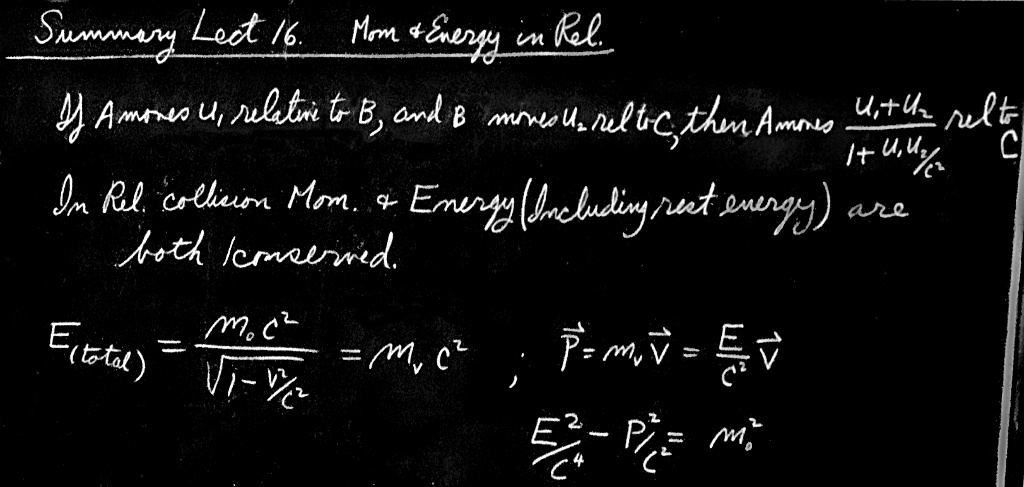 Summary Lect 16. Mom & Energy in Rel.
If A moves u₁ relative to B, and B moves u₂ rel to C, then A moves (u₁+u₂)/(1+u₁u₂/c²) rel to C
In Rel. collision Mom. & Energy (Including rest energy) are
both conserved.
E(total) = m₀c²/√(1-v²/c²) = mᵥc² ; P⃗ = mᵥv⃗ = E/c² v⃗
E²/c⁴ - P²/c² = m₀²